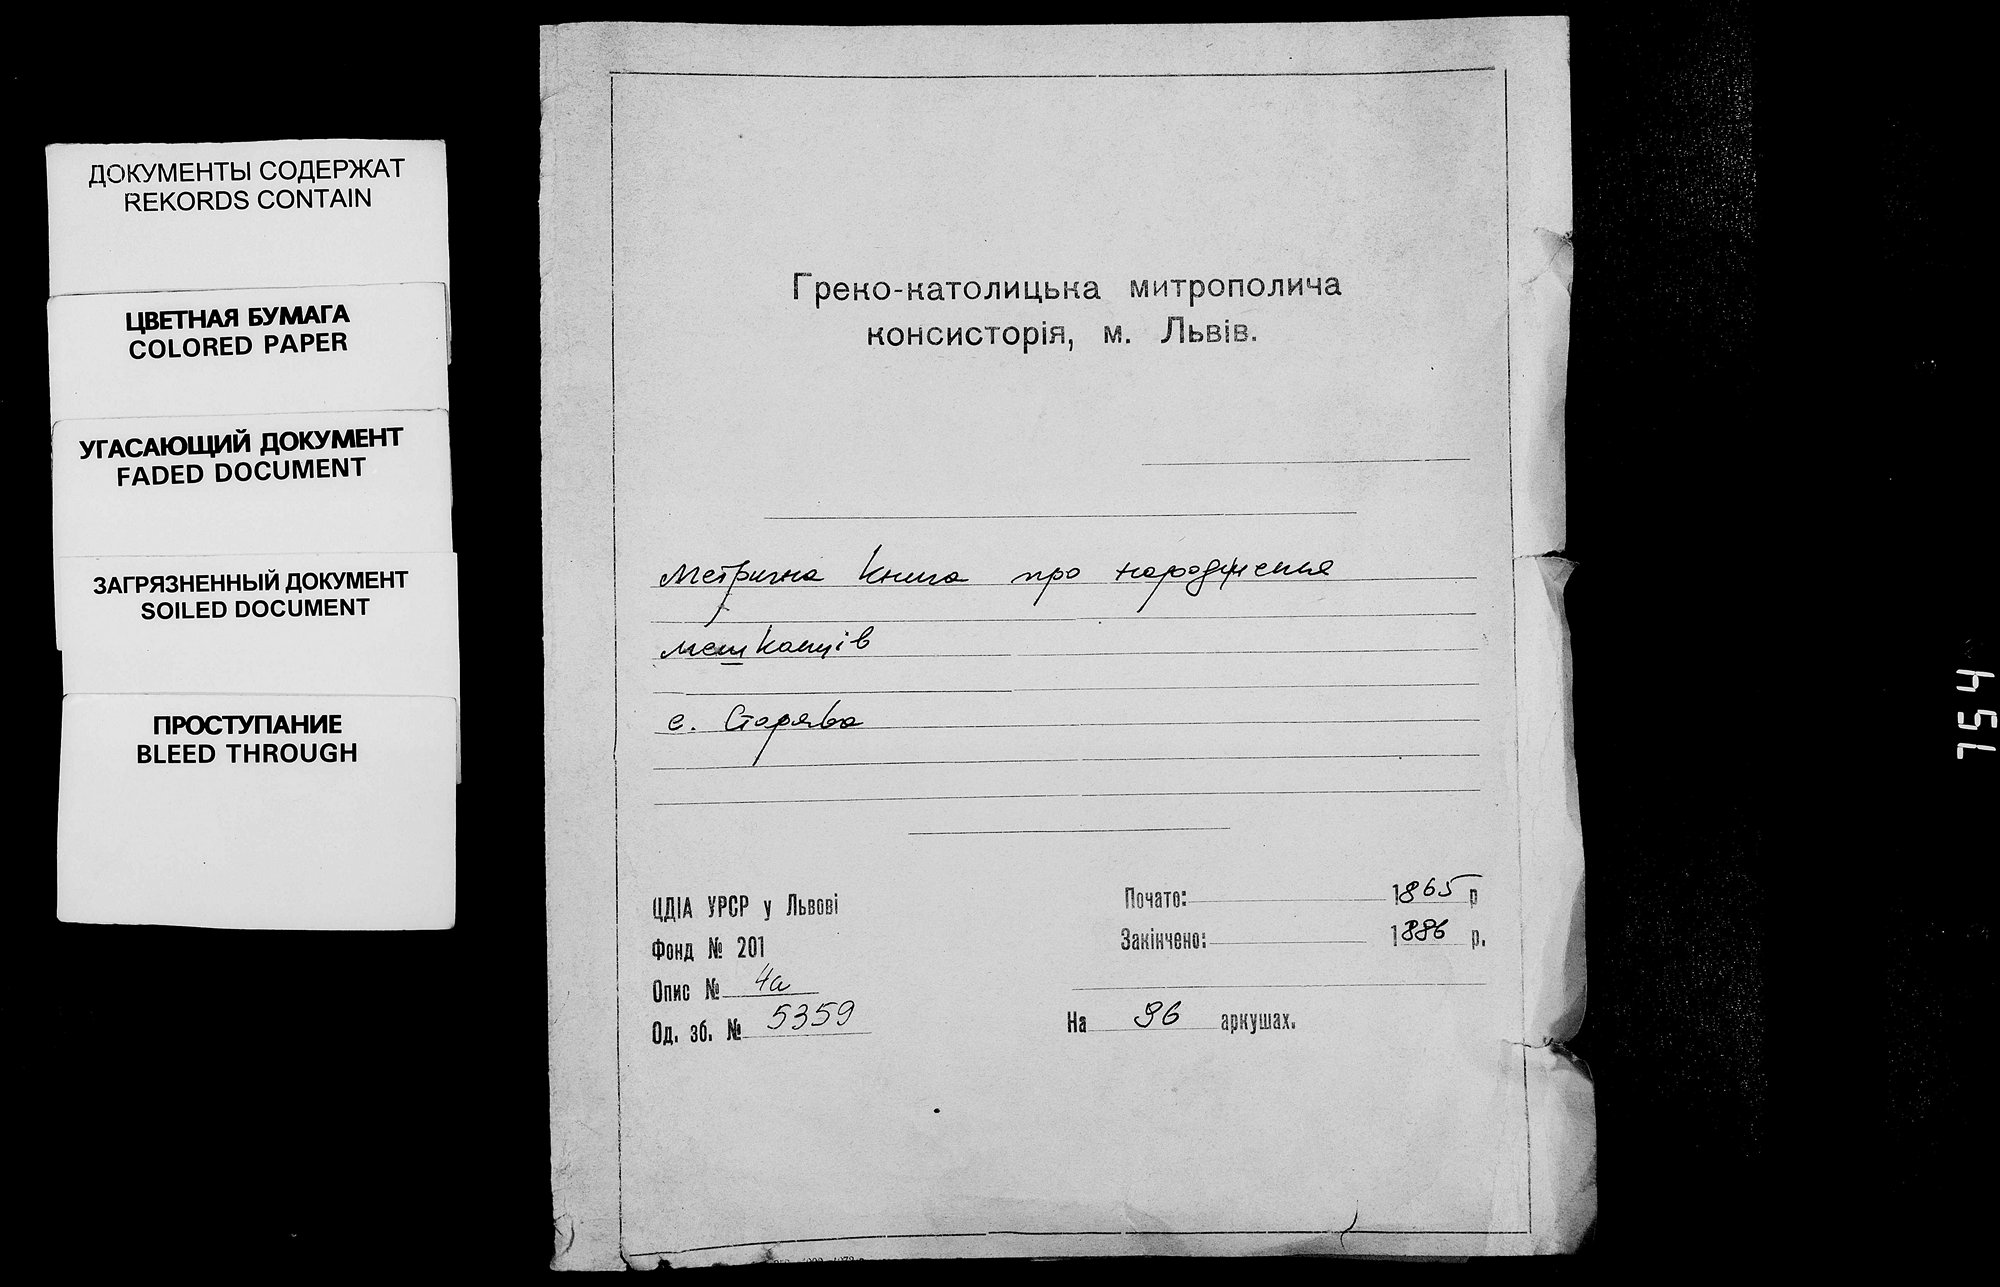 ДОКУМЕНТЫ СОДЕРЖАТ
REKORDS CONTAIN
ЦВЕТНАЯ БУМАГА
COLORED PAPER
УГАСАЮЩИЙ ДОКУМЕНТ
FADED DOCUMENT
ЗАГРЯЗНЕННЫЙ ДОКУМЕНТ
SOILED DOCUMENT
ПРОСТУПАНИЕ
BLEED THROUGH
Греко-католицька митрополича
консисторія, м. Львів.
Метрична книга про народження
мешканців
с. Старява
ЦДІА УРСР у Львові
Фонд № 201
Опис № 4а
Од. зб. № 5359
Почато: 1865 р
Закінчено: 1886 р.
На 96 аркушах.
754